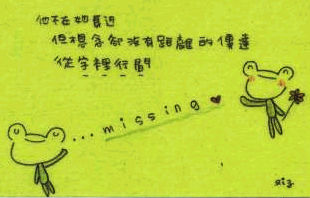 他不在她身邊
但想念卻沒有距離的傳達
從字裡行間
...missing